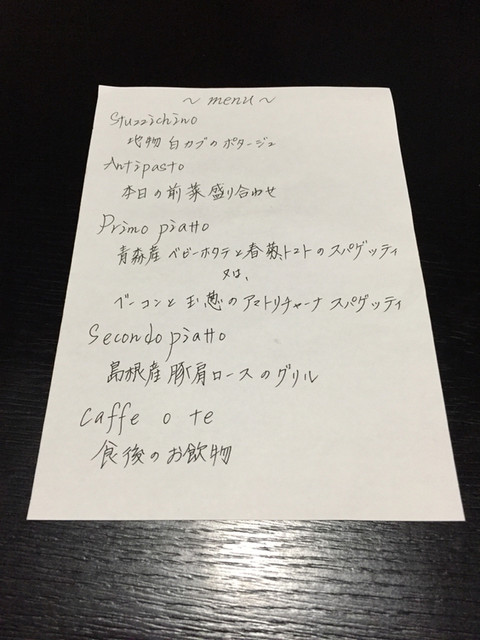 ～ menu ～
Stuzzichino
地物 白カブのポタージュ
Antipasto
本日の前菜盛り合わせ
Primo piatto
青森産 ベビーホタテと春菊、トマトのスパゲッティ
又は、
ベーコンと玉葱のアマトリチャーナ スパゲッティ
Secondo piatto
島根産豚肩ロースのグリル
Caffe o te
食後のお飲物